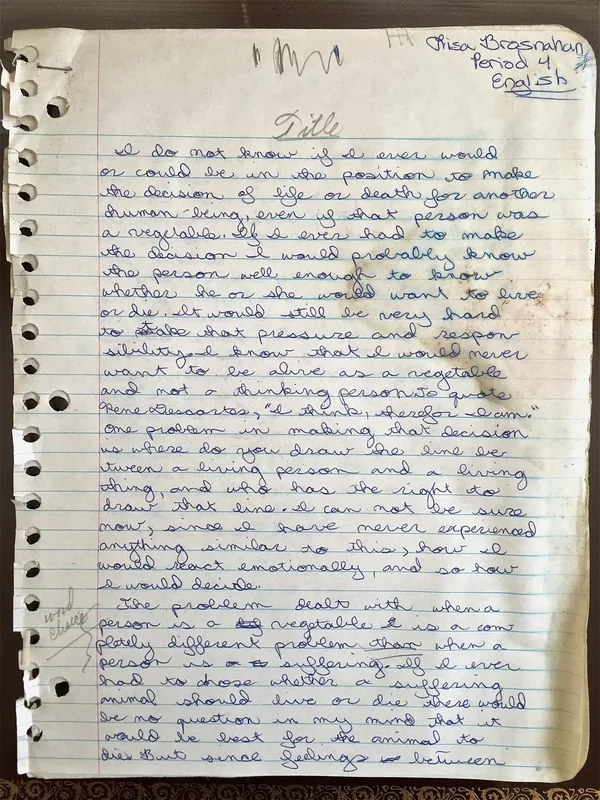 Risa Brosnahan
Period 4
English
Title
I do not know if I ever would
or could be in the position to make
the decision of life or death for another
human being, even if that person was
a vegetable. If I ever had to make
the decision I would probably know
the person well enough to know
whether he or she would want to live
or die. It would still be very hard
to take that pressure and respon
sibility. I know that I would never
want to be alive as a vegetable
and not a thinking person. To quote
Rene Descartes, "I think, therefor I am."
One problem in making that decision
is where do you draw the line be
tween a living person and a living
thing, and who has the right to
draw that line. I can not be sure
now, since I have never experienced
anything similar to this, how I
would react emotionally, and so how
I would decide.
The problem dealt with when a
person is a vegetable is a com
pletely different problem than when a
word
choice
person is suffering. If I ever
had to chose whether a suffering
animal should live or die there would
be no question in my mind that it
would be best for the animal to
die. But since feelings between